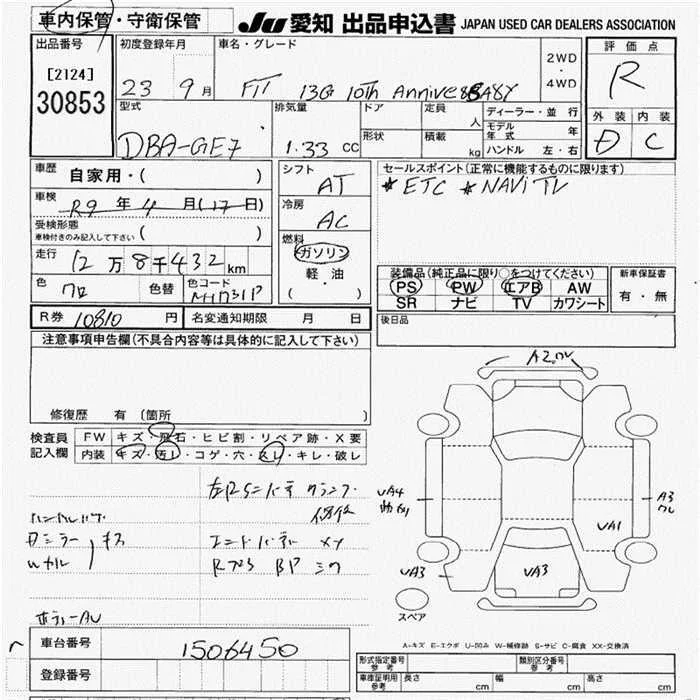 車内保管・守衛保管
JU 愛知 出品申込書 JAPAN USED CAR DEALERS ASSOCIATION
出品番号
[2124]
30853
初度登録年月
23 9月
車名・グレード
FIT 13G 10th Annive
2WD
・
4WD
評価点
R
外装 内装
D C
型式
DBA-GE7
排気量
1.33 CC
ドア
形状
定員
人
積載
kg
ディーラー・並行
モデル年式 年
ハンドル 左・右
車歴
自家用・( )
車検
R9 年 4 月 (17 日)
受検形態
車検付きのみ記入して下さい ( )
走行
12万8千432km
色
色替
色コード
シフト
AT
冷房
AC
燃料
ガソリン
軽・油
( ・ )
セールスポイント(正常に機能するものに限ります)
*ETC *NAVi TV
装備品(純正品に限り○をつけてください)
PS PW エアB AW
SR ナビ TV カワシート
新車保証書
有・無
R券 10810 円
名変通知期限 月 日
後日品
注意事項申告欄(不具合内容等は具体的に記入して下さい)
修復歴 有 〔箇所 〕
検査員
記入欄
FW キズ・飛石・ヒビ割・リペア跡・X要
内装 キズ・汚レ・コゲ・穴・スレ・キレ・破レ
修復
キズ
エンドパネル
A2
UA4
A3
UA1
UA3
UA3
スペア
A-キズ E-エクボ U-凹み W-補修跡 S-サビ C-腐食 XX-交換済
車台番号
1506450
登録番号
形式指定番号
参考
類別区分番号
参考
車庫証明用
参考
長さ cm 幅 cm 高さ cm